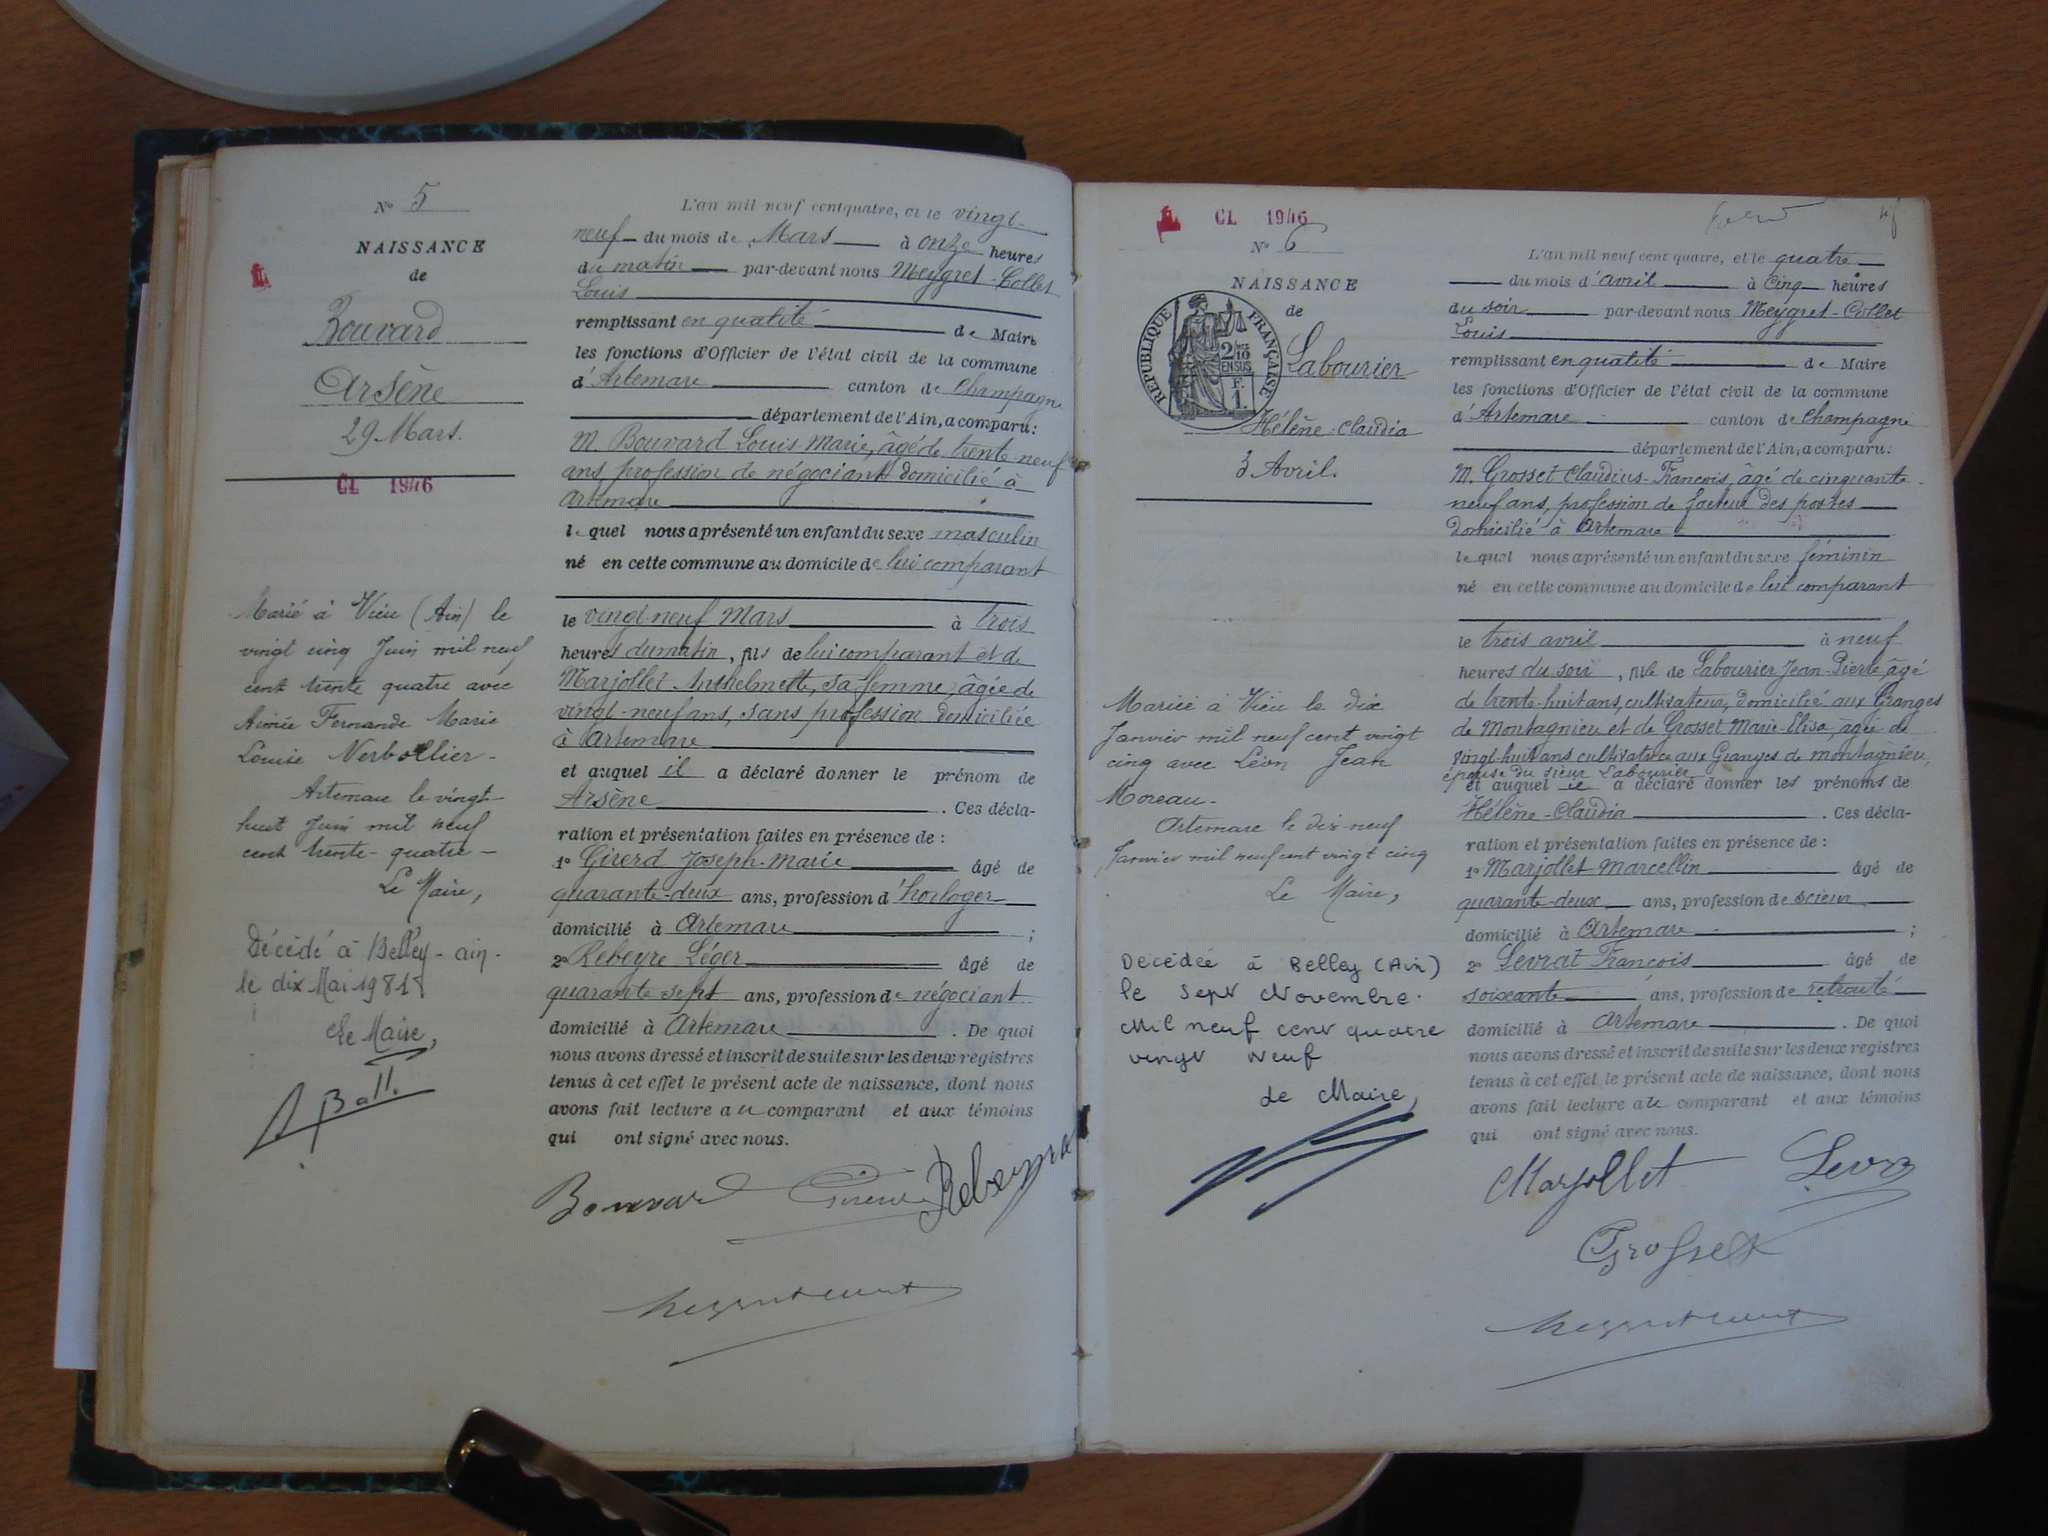 N° 5
NAISSANCE
de
Bouvard
Arsène
29 Mars.
CL 1946
Marié à Vieu (Ain) le
vingt cinq Juin mil neuf
cent trente quatre avec
Aimée Fernande Marie
Louise Verbollier.
Artemare le vingt-
huit Juin mil neuf
cent trente-quatre
Le Maire,
Décédé à Belley-ain.
le dix Mai 1981
Le Maire,
L'an mil neuf cent quatre, et le vingt-
neuf du mois de Mars à onze heures
du matin par-devant nous Meygret-Collet
Louis
remplissant en qualité de Maire
les fonctions d'Officier de l'état civil de la commune
d'Artemare canton de Champagne
département de l'Ain, a comparu:
M. Bouvard Louis Marie, âgé de trente neuf
ans, profession de négociant domicilié à
Artemare
lequel nous a présenté un enfant du sexe masculin
né en cette commune au domicile de lui comparant
le vingt-neuf Mars à trois
heures du matin, fils de lui comparant et de
Marjollet Anthelmette, sa femme, âgée de
vingt-neuf ans, sans profession domiciliée
à Artemare
et auquel il a déclaré donner le prénom de
Arsène. Ces décla-
ration et présentation faites en présence de :
1° Girerd Joseph-Marie âgé de
quarante-deux ans, profession d'horloger
domicilié à Artemare ;
2° Rebeyre Léger âgé de
quarante sept ans, profession de négociant
domicilié à Artemare. De quoi
nous avons dressé et inscrit de suite sur les deux registres
tenus à cet effet le présent acte de naissance, dont nous
avons fait lecture au comparant et aux témoins
qui ont signé avec nous.
Bouvard Girerd Rebeyre
CL 1946
N° 6
NAISSANCE
de
RÉPUBLIQUE FRANÇAISE
2/10 EN SUS
F. 1.
Labourier
Hélène-Claudia
3 Avril.
Mariée à Vieu le dix
Janvier mil neuf cent vingt
cinq avec Léon Jean
Moreau.
Artemare le dix-neuf
Janvier mil neuf cent vingt cinq
Le Maire,
Décédée à Belley (Ain)
le sept Novembre.
Mil neuf cent quatre
vingt neuf
Le Maire,
L'an mil neuf cent quatre, et le quatre
du mois d'avril à cinq heures
du soir par-devant nous Meygret-Collet
Louis
remplissant en qualité de Maire
les fonctions d'Officier de l'état civil de la commune
d'Artemare canton de Champagne
département de l'Ain, a comparu:
M. Grosset Claudius-François, âgé de cinquante-
neuf ans, profession de facteur des postes
domicilié à Artemare
lequel nous a présenté un enfant du sexe féminin
né en cette commune au domicile de lui comparant
le trois avril à neuf
heures du soir, fille de Labourier Jean-Pierre, âgé
de trente-huit ans, cultivateur, domicilié aux Granges
de Montagnieu et de Grosset Marie-Elisa, âgée de
vingt-huit ans cultivatrice aux Granges de montagnieu,
épouse du sieur Labourier
et auquel il a déclaré donner les prénoms de
Hélène-Claudia. Ces décla-
ration et présentation faites en présence de :
1° Marjollet Marcellin âgé de
quarante-deux ans, profession de scieur
domicilié à Artemare ;
2° Levrat François âgé de
soixante ans, profession de retraité
domicilié à Artemare. De quoi
nous avons dressé et inscrit de suite sur les deux registres
tenus à cet effet le présent acte de naissance, dont nous
avons fait lecture au comparant et aux témoins
qui ont signé avec nous.
Marjollet Levrat
Grosset